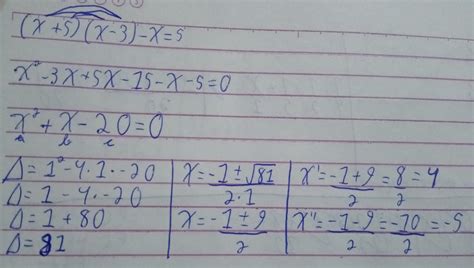 (x+5)(x-3)-x=5
x²-3x+5x-15-x-5=0
x²+x-20=0
a b c
Δ=1²-4·1·-20
Δ=1-4·-20
Δ=1+80
Δ=81
x=-1±√81
2·1
x=-1±9
2
x'=-1+9=8=4
2 2
x''=-1-9=-10=-5
2 2